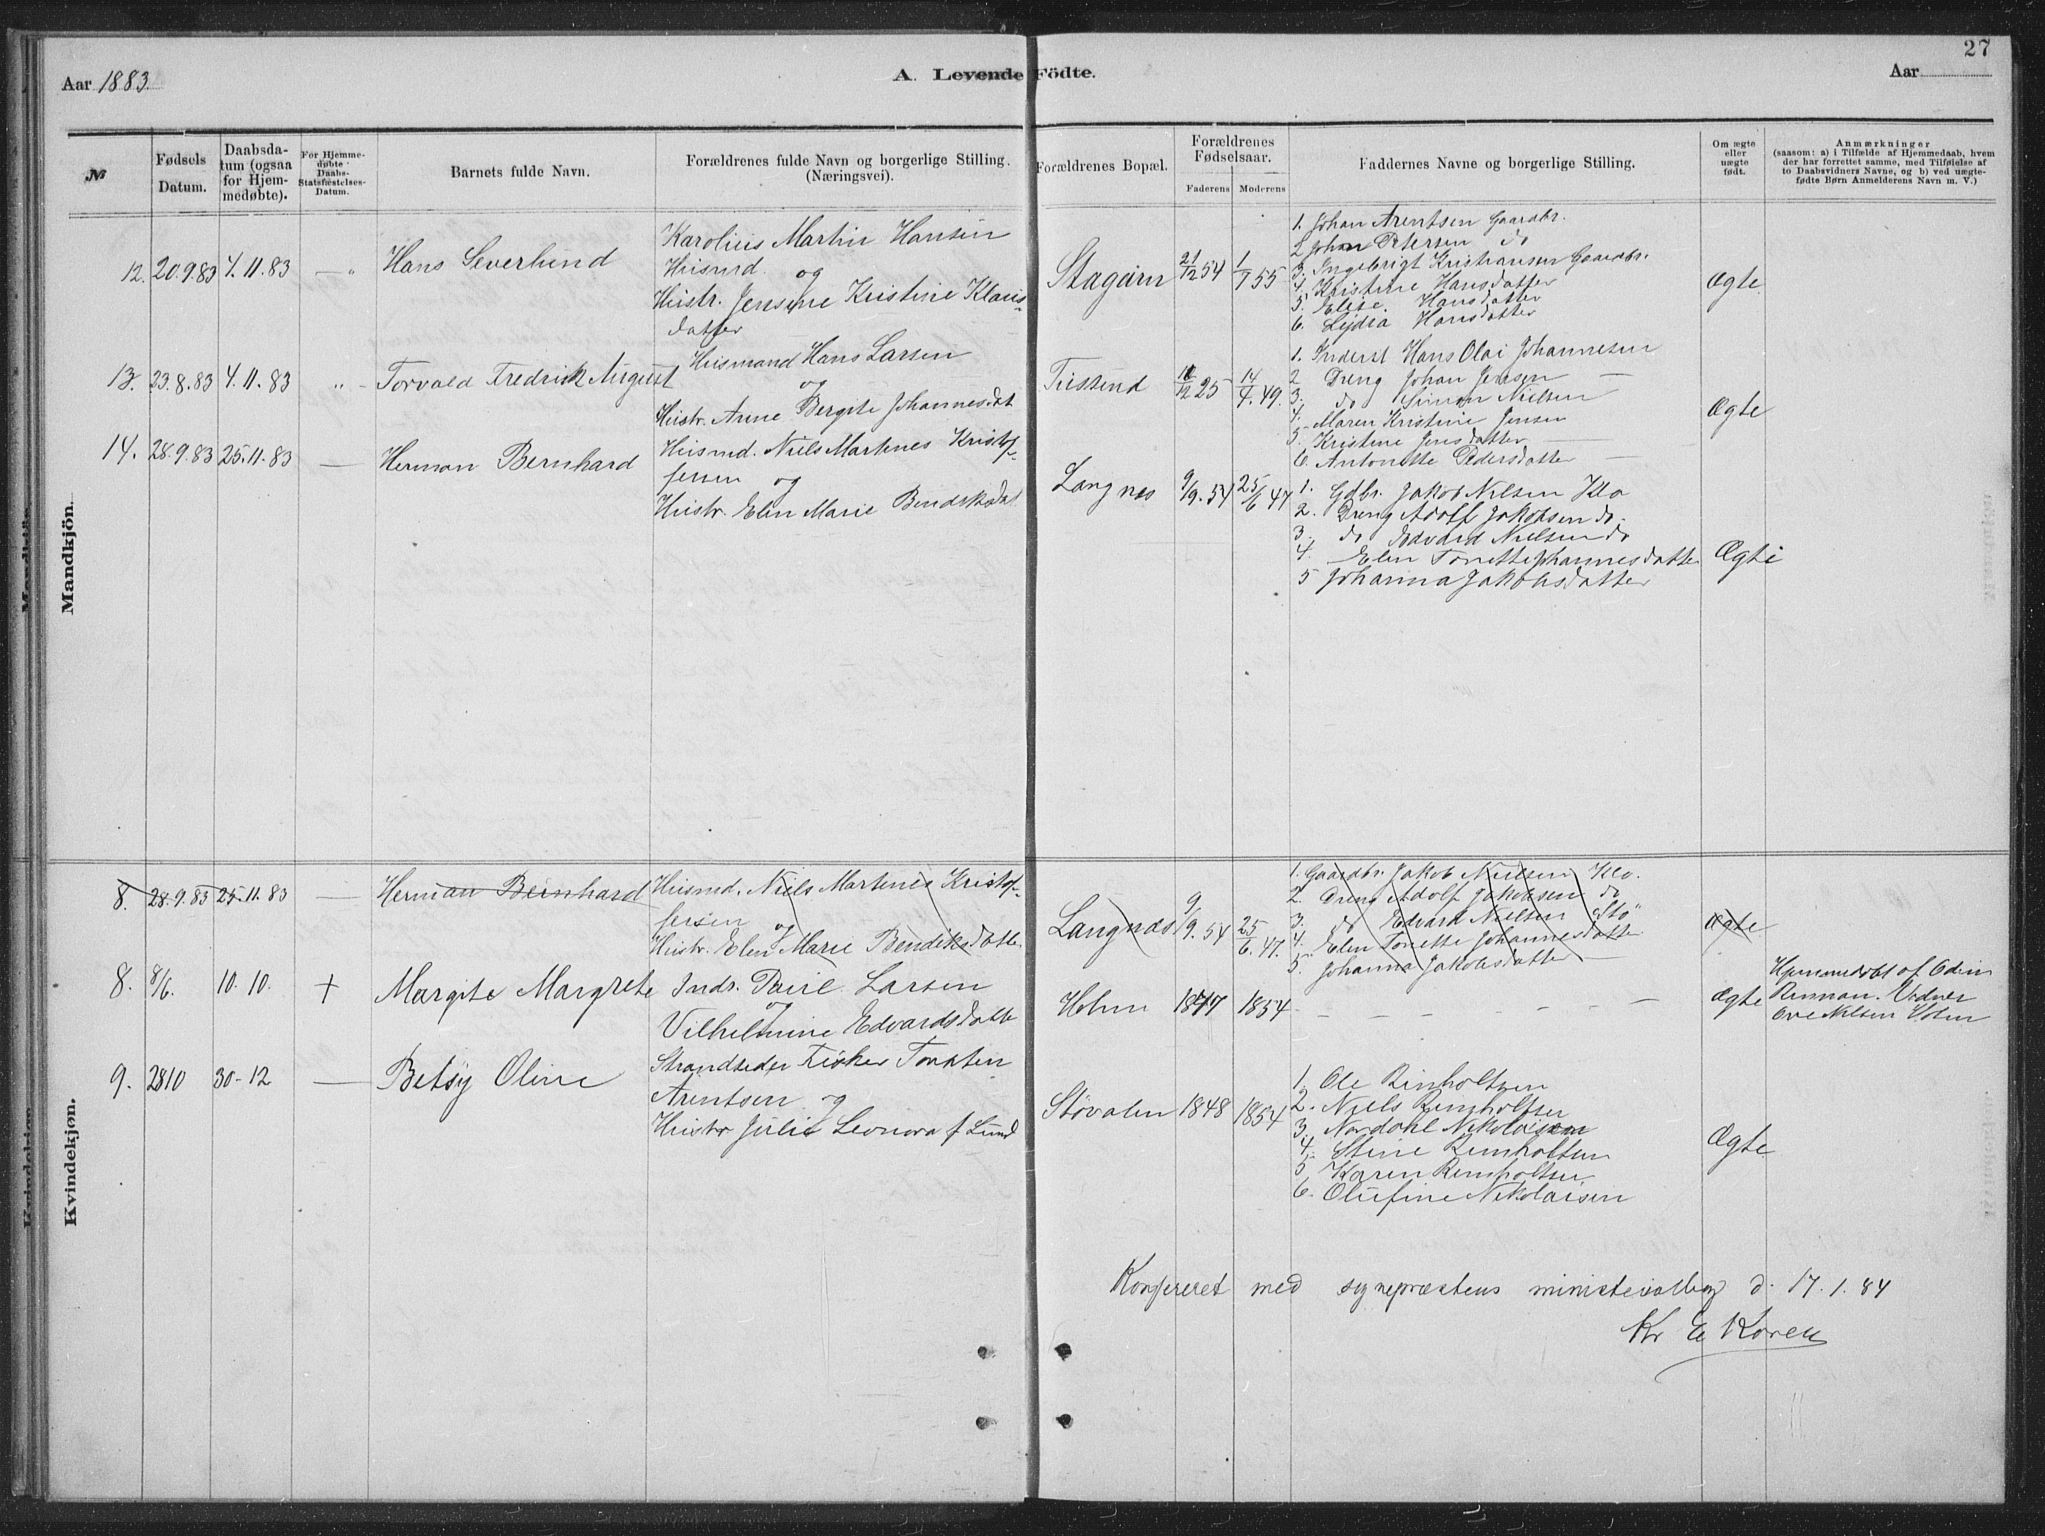 27
Aar 1883. A. Levende Födte. Aar
№
Fødsels Datum.
Daabsdatum (ogsaa for Hjemmedøbte).
For Hjemmedøbte Daabs-Statsfæstelses-Datum.
Barnets fulde Navn.
Forældrenes fulde Navn og borgerlige Stilling. (Næringsvei).
Forældrenes Bopæl.
Forældrenes Fødselsaar.
Faderens Moderens
Faddernes Navne og borgerlige Stilling.
Om ægte eller uægte født.
Anmærkninger
(saasom: a) i Tilfælde af Hjemmedaab, hvem
der har forrettet samme, med Tilføielse af
to Daabsvidners Navne, og b) ved uægte-
fødte Børn Anmelderens Navn m. V.)
Mandkjön.
12. 20.9.83 4.11.83 — „ Hans Severlund
Karolius Martin Hansen
Husmd. og
Hustr. Jensine Kristine Klaus-
datter
Stagarn 21/12 54 1/7 55
1. Johan Arentsen Gaardbr.
2 Johan Petersen do
3. Ingebrigt Kristiansen Gaardbr.
4. Kristine Hansdatter
5. Elise Hansdatter
6. Lydia Hansdatter
Ægte
13. 23.8.83 4.11.83 „ - Torvald Fredrick August
Husmand Hans Larsen
og
Hustr. Anne Bergite Johannesdat
Tustend 11/12 25 14/4. 49.
1. Inderst Hans Olai Johannesen
2 Dreng Johan Jensen —
3. do Simon Nielsen
4. Maren Kristine Jensen
5. Kristine Jensdatter —
6. Antonette Pedersdatter —
Ægte
14. 28.9.83 25.11.83 — Herman Bernhard
Husmd. Niels Martenes Kristof-
fersen og
Hustr. Elen Marie Bendiksdat
Langnes 9/9. 54 25/6 47
1. Gdbr. Jakob Nilsen Klo
2. Dreng Adolf Jakobsen do.
3. do Edvard Nielsen do
4. Elen Tonette Johannesdatter
5 Johanna Jakobsdatter
Ægte
Kvindekjøn.
8. 28.9.83 25.11.83 — Herman Bernhard
Husmd. Niels Martenes Kristof-
fersen og
Hustr. Elen Marie Bendiksdatter
Langnes 9/9. 54 25/6. 47.
1. Gaardbr. Jakob Nielsen Klo.
2. Dreng Adolf Jakobsen do
3. do Edvard Nielsen Stø
4. Elen Tonette Johannesdatter
5. Johanna Jakobsdatter —
Ægte
8. 8/6. 10.10. + Margite Margrete
Indr. Paul Larsen
og
Vilhelmine Edvardsdatte
Holm 1847 1854 — — — — — — — Ægte
Hjemmedøbt af Odin
Rinnan. Vidner
Ove Nilsen Holm
9. 2810 30-12 — Betsy Oline
Strandsider Fisker Torsten
Arentsen og
Hustr Julie Leonora f Lund
Støvalen 1848 1854
1. Ole Rinholtsen
2. Niels Reinholtsen
3. Nordahl Nikolaisen
4. Stine Reinholtsen
5 Karen Reinholtsen
6. Olufine Nikolaisen
Ægte
Konfereret med sognepræstens ministerialbog d. 17.1.84
Kr E Koren